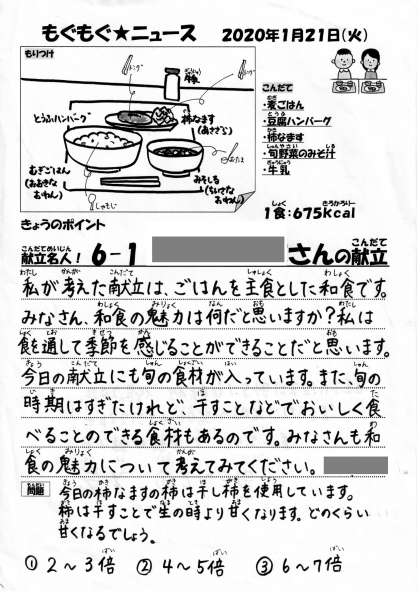 もぐもぐ★ニュース 2020年1月21日(火)
もりつけ
ぎゅうにゅう
とうふハンバーグ
柿なます
(あさざら)
むぎごはん
(おおきなおわん)
みそしる
(ちいさなおわん)
しゃもじ
おたま
トング
トング
こんだて
・麦ごはん
・豆腐ハンバーグ
・柿なます
・旬野菜のみそ汁
・牛乳
1食:675kcal
きょうのポイント
献立名人! 6-1 さんの献立
私が考えた献立は、ごはんを主食とした和食です。
みなさん、和食の魅力は何だと思いますか?私は
食を通して季節を感じることができることだと思います。
今日の献立にも旬の食材が入っています。また、旬の
時期はすぎたけれど、干すことなどでおいしく食
べることのできる食材もあるのです。みなさんも和
食の魅力について考えてみてください。
問題 今日の柿なますの柿は干し柿を使用しています。
柿は干すことで生の時より甘くなります。どのくらい
甘くなるでしょう。
① 2〜3倍 ② 4〜5倍 ③ 6〜7倍